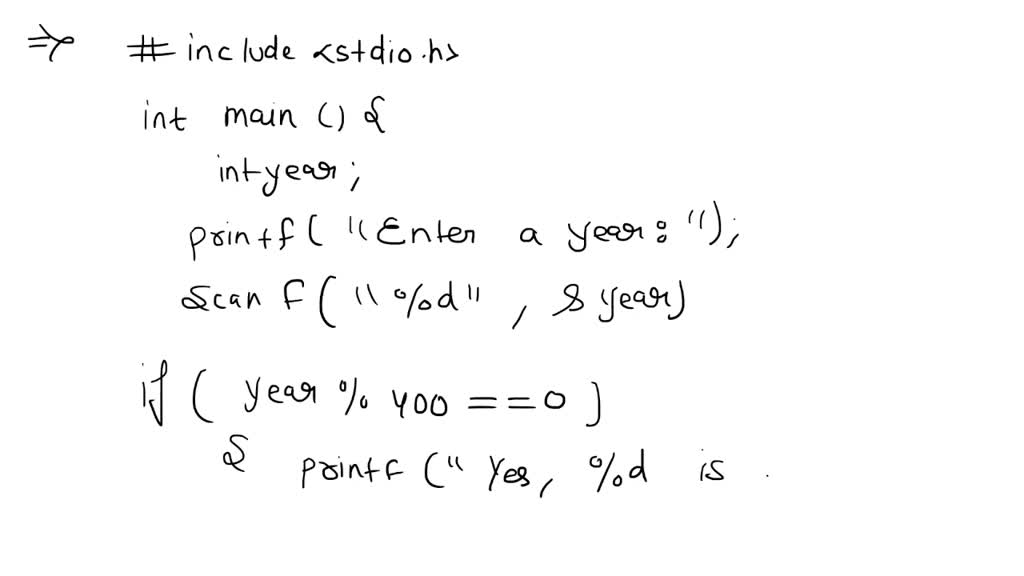 ⇒ #include <stdio.h>
int main () {
int year;
printf ( "Enter a year: ");
scanf ( "%d" , &year)
if ( year % 400 == 0 )
{ printf (" Yes, %d is .